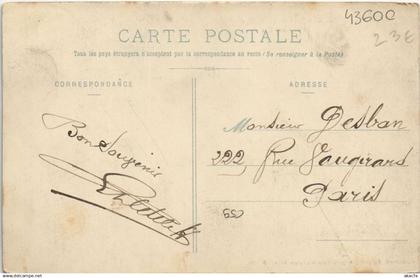 43600
23€
CARTE POSTALE
Tous les pays étrangers n'acceptent pas la correspondance au recto (Se renseigner à la Poste)
CORRESPONDANCE
ADRESSE
Bon Souvenir
Monsieur Desban
222, Rue Vaugirard
Paris